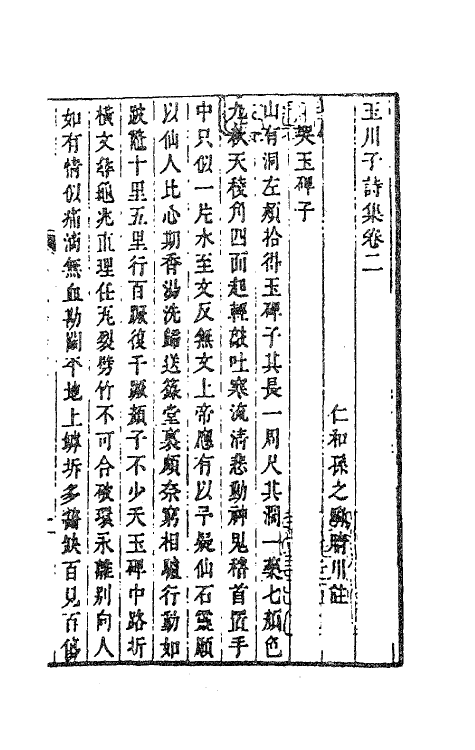 玉川子詩集卷二
仁和孫之騄晴川註
哭玉碑子
山有洞左頰拾得玉碑子其長一周尺其濶一藥匕顏色
九秋天稜角四面起輕敲吐寒流清悲動神鬼稽首置手
中只似一片水至文反無文上帝應有以予疑仙石靈願
以仙人比心期香湯洗歸送籙堂裏頗奈窮相驢行動如
跛鼈十里五里行百蹶復千蹶顏子不少夭玉碑中路折
橫文尋龜兆直理任瓦裂劈竹不可合破環永離别向人
如有情似痛滴無血勘鬭平地上罅坼多齧缺百見百傷